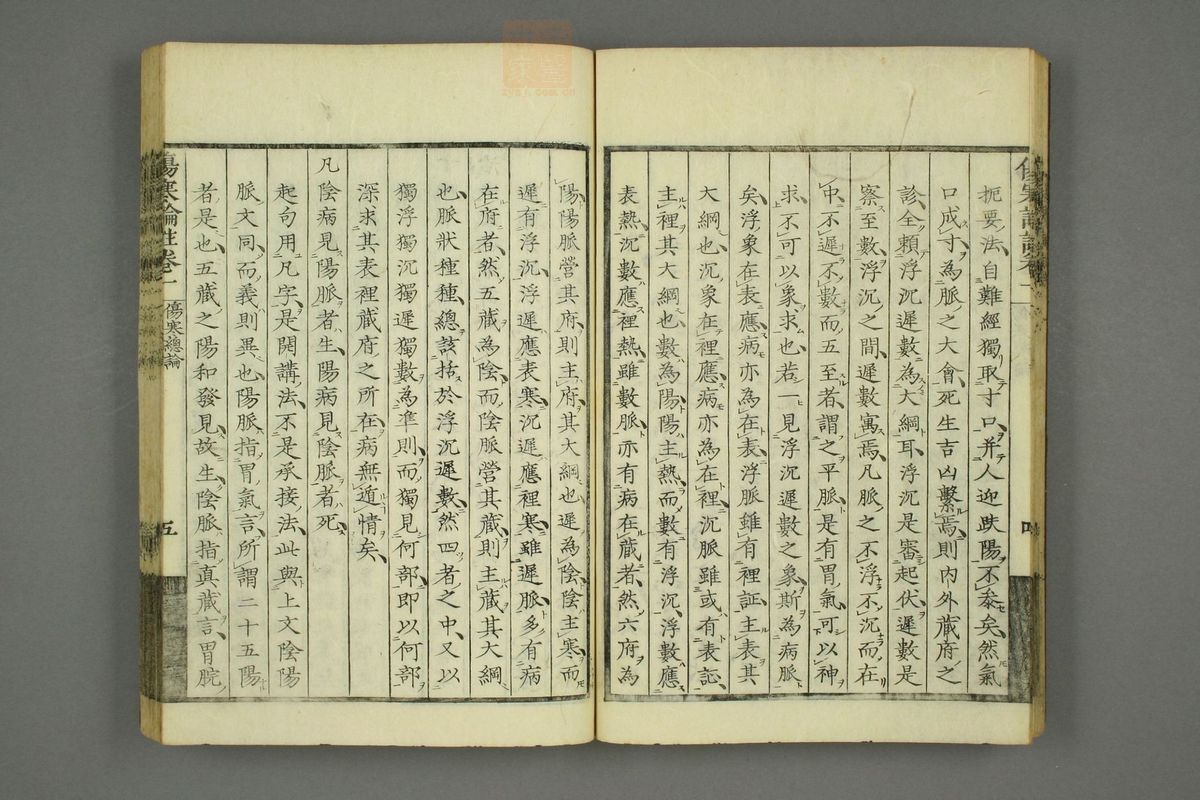 扼要法自難經獨取寸口并人迎趺陽不叅矣然氣
口成寸為脈之大會死生吉凶繫焉則內外藏府之
診全賴浮沉遲數為大綱耳浮沉是審起伏遲數是
察至數浮沉之間遲數寓焉凡脈之不浮不沉而在
中不遲不數而五至者謂之平脈是有胃氣可以神
求不可以象求也若一見浮沉遲數之象斯為病脈
矣浮象在表應病亦為在表浮脈雖有裡証主表其
大綱也沉象在裡應病亦為在裡沉脈雖或有表証
主裡其大綱也數為陽陽主熱而數有浮沉浮數應
表熱沉數應裡熱雖數脈亦有病在藏者然六府為
陽陽脈營其府則主府其大綱也遲為陰陰主寒而
遲有浮沉浮遲應表寒沉遲應裡寒雖遲脈多有病
在府者然五藏為陰而陰脈營其藏則主藏其大綱
也脈狀種種總該括於浮沉遲數然四者之中又以
獨浮獨沉獨遲獨數為準則而獨見何部即以何部
深求其表裡藏府之所在病無遁情矣
凡陰病見陽脈者生陽病見陰脈者死
起句用凡字是開講法不是承接法此與上文陰陽
脈文同而義則異也陽脈指胃氣言所謂二十五陽
者是也五藏之陽和發見故生陰脈指真藏言胃脘
傷寒論註卷一 傷寒總論 五